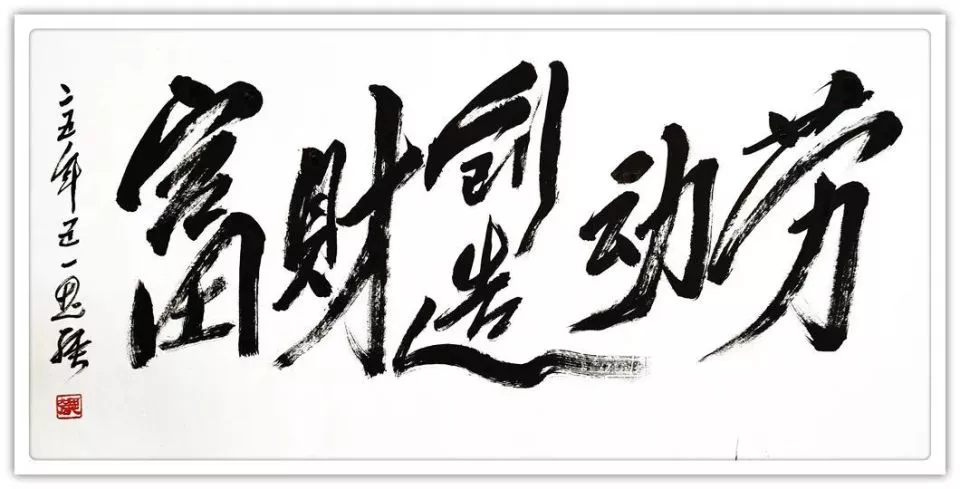 劳动创造财富
二五年五一